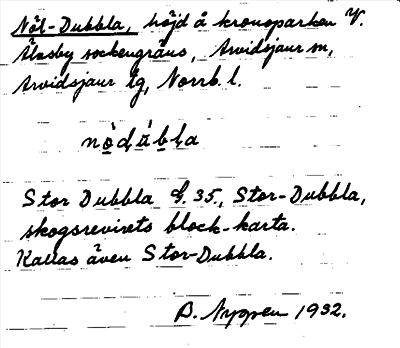 Nöt-Dubbla, höjd å kronoparken V.
Älvsby sockengräns, Arvidsjaur sn,
Arvidsjaur tg, Norrb. l.
Stor Dubbla G. 35., Stor-Dubbla,
skogsrevirets block-karta.
Kallas även Stor-Dubbla.
B. Nygren 1932.